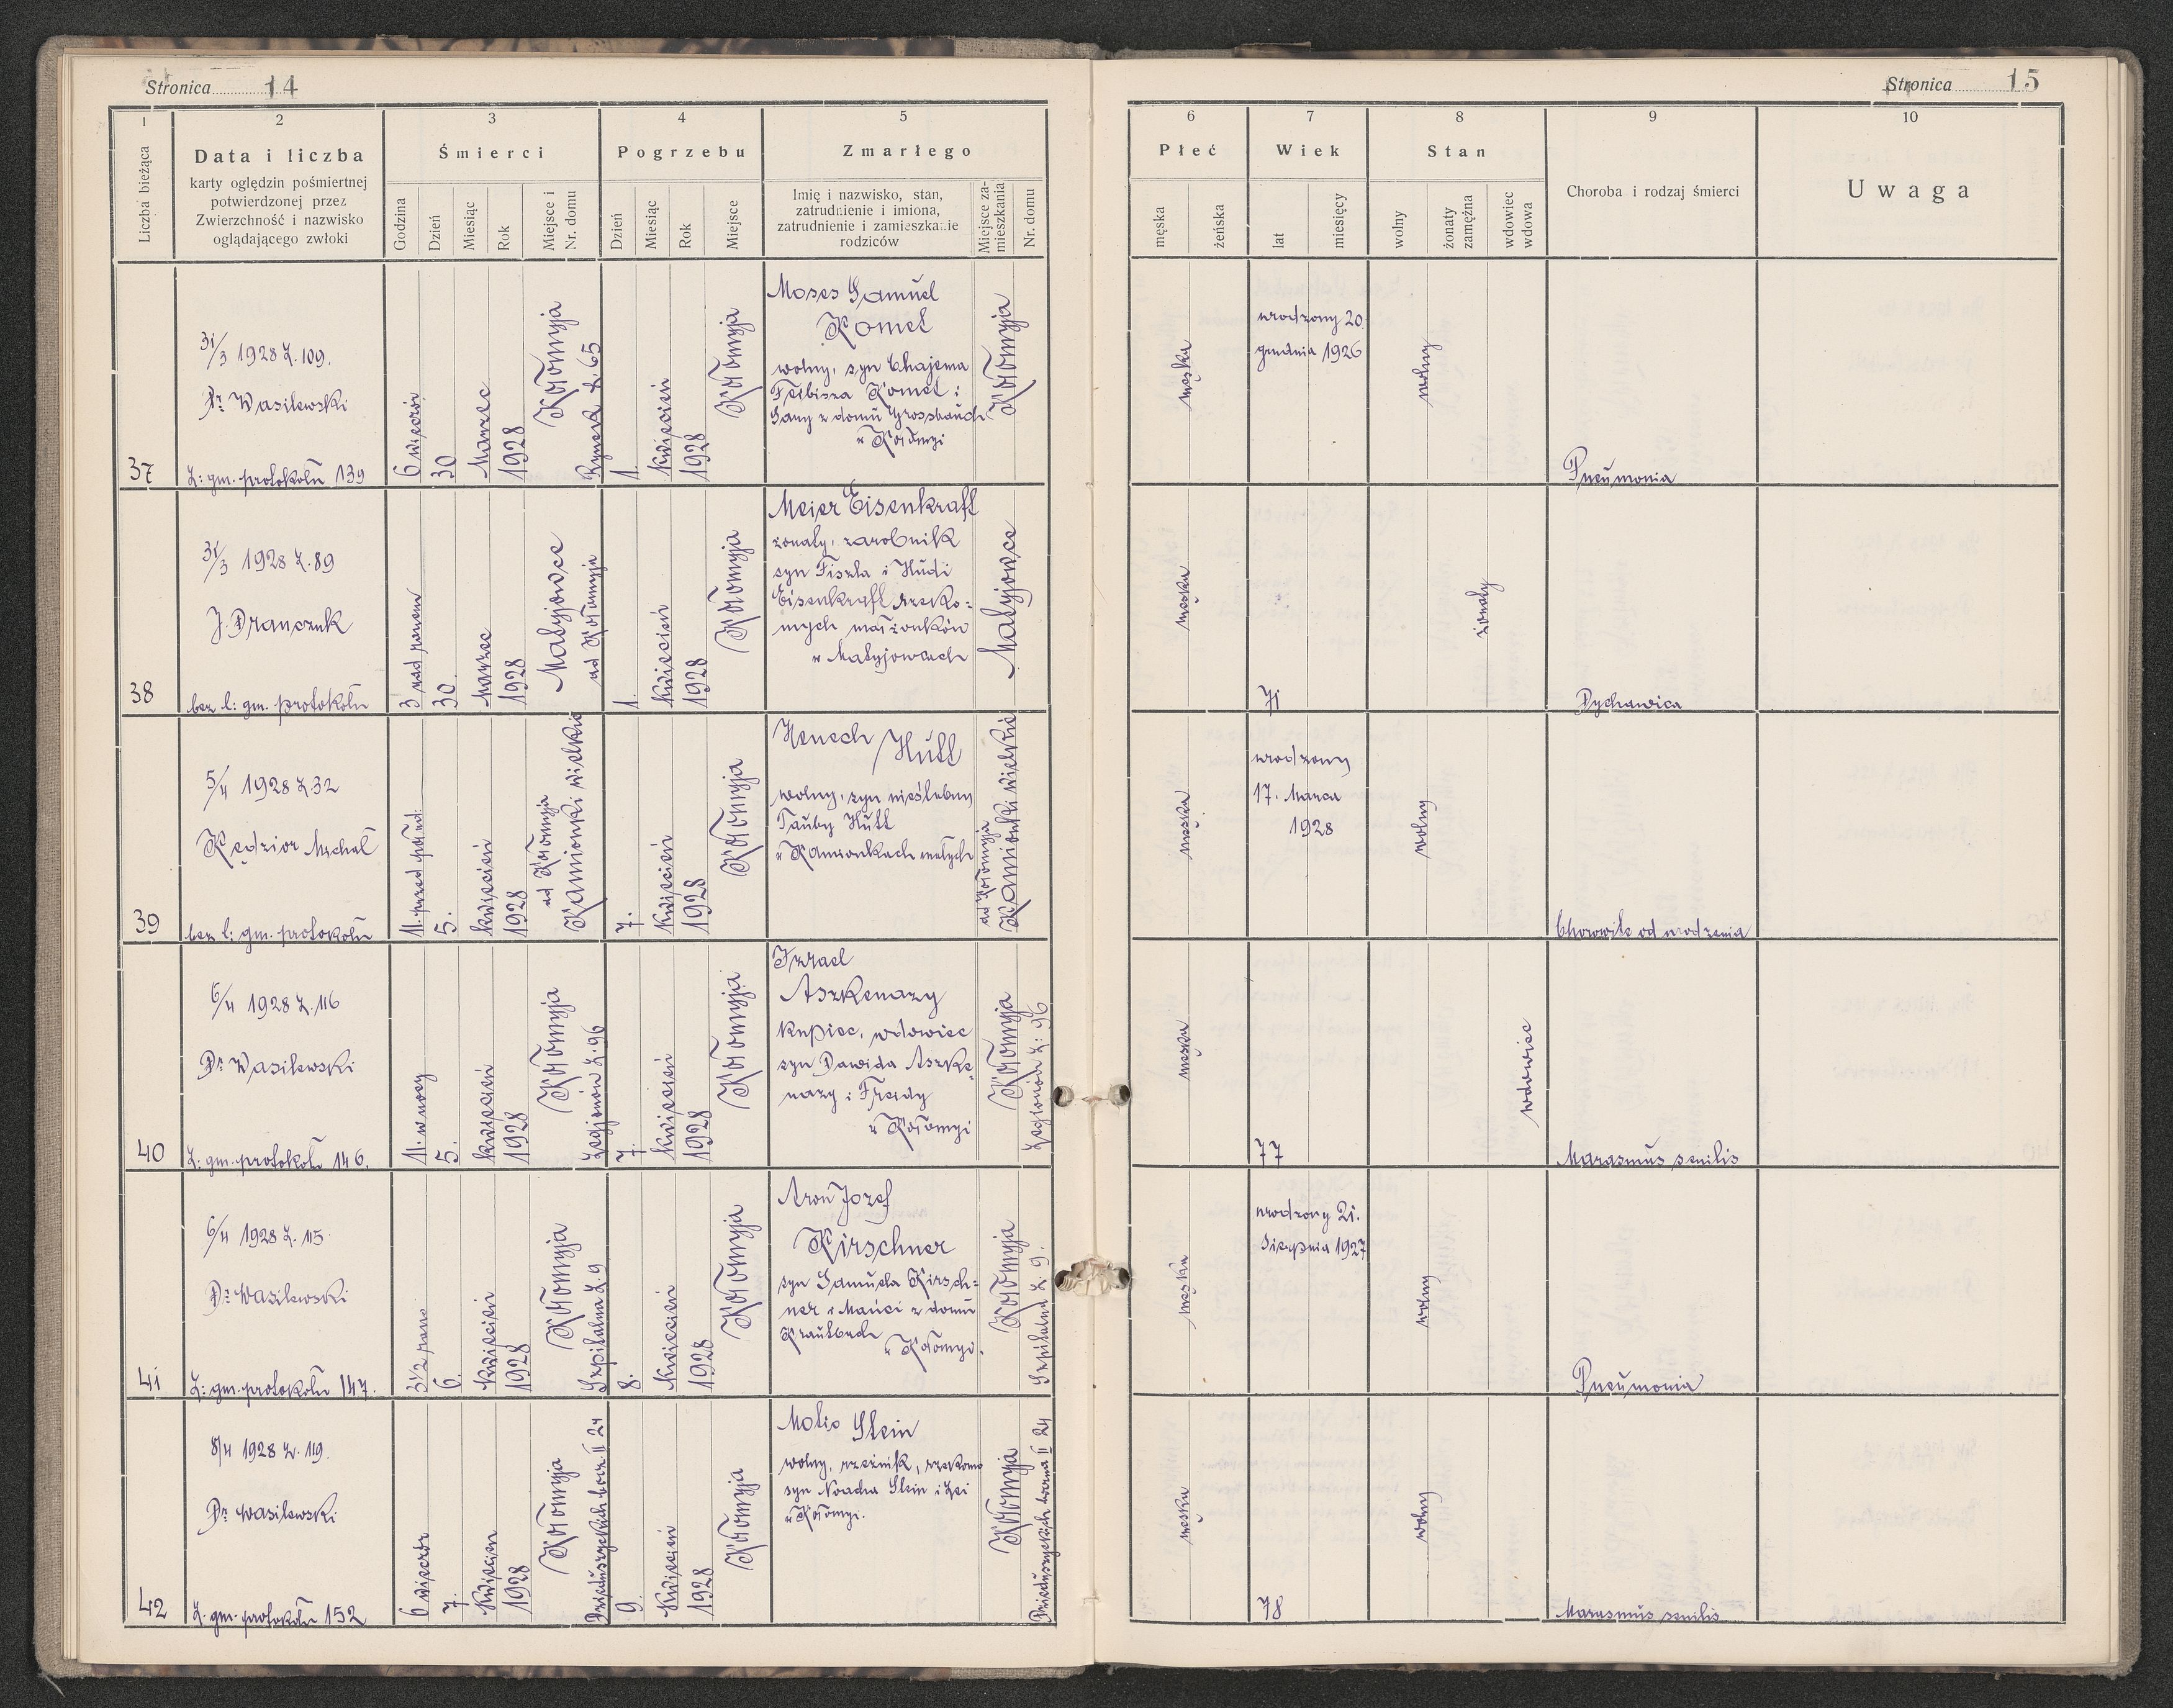 Stronica 14
1
2
3
4
5
Liczba bieżąca
Data i liczba
karty oględzin pośmiertnej
potwierdzonej przez
Zwierzchność i nazwisko
oglądającego zwłoki
Śmierci
Godzina
Dzień
Miesiąc
Rok
Miejsce i
Nr. domu
Pogrzebu
Dzień
Miesiąc
Rok
Miejsce
Zmarłego
Imię i nazwisko, stan,
zatrudnienie i imiona,
zatrudnienie i zamieszkanie
rodziców
Miejsce za-
mieszkania
Nr. domu
37
31/3 1928 L. 109.
Dr Wasilewski
L: gm. protokołu 139
6 wieczór
30
Marzec
1928
Kołomyja
Rynek L. 65
1.
Kwiecień
1928
Kołomyja
Moses Samuel
Komet
wolny, syn Chajema
Feibisza Komet i
Sany z domu Grossbauch
w Kołomyi
Kołomyja
38
31/3 1928 L. 89
J. Dranczuk
bez l: gm. protokołu
3 nad ranem
30.
Marzec
1928
Matyjowce
ad Kołomyja
1.
Kwiecień
1928
Kołomyja
Meier Eisenkraft
żonaty, zarobnik
syn Fiszla i Hudi
Eisenkraft rzeko=
mych małżonków
w Matyjowcach
Matyjowce
39
5/4 1928 L. 32
Kędzior Michał
bez l: gm. protokołu
11. przed połud.
5.
Kwiecień
1928
ad Kołomyja
Kamionki wielkie
7.
Kwiecień
1928
Kołomyja
Henech Hutt
wolny, syn nieślubny
Tauby Hutt
w Kamionkach małych
ad Kołomyja
Kamionki wielkie
40
6/4 1928 L. 116
Dr Wasilewski
L: gm. protokołu 146.
11. w nocy
5.
Kwiecień
1928
Kołomyja
Legionów L. 96
7.
Kwiecień
1928
Kołomyja
Izrael
Aszkenazy
kupiec, wdowiec
syn Dawida Aszke=
nazy i Freidy
w Kołomyi
Kołomyja
Legionów L: 96
41
6/4 1928 L. 115
Dr Wasilewski
L: gm. protokołu 147.
3 1/2 rano
6.
Kwiecień
1928
Kołomyja
Szpitalna L. 9
8.
Kwiecień
1928
Kołomyja
Aron Jozef
Kirschner
syn Samuela Kirsch=
ner i Manci z domu
Krautbach
w Kołomyi.
Kołomyja
Szpitalna L. 9.
42
8/4 1928 L. 119.
Dr Wasilewski
L. gm. protokołu 152
6 wieczór
7.
Kwiecień
1928
Kołomyja
Dzieduszyckich boczna II 24
9.
Kwiecień
1928
Kołomyja
Motio Stein
wolny, rzeźnik, rzekomo
syn Noacha Stein i Lei
w Kołomyi.
Kołomyja
Dzieduszyckich boczna II 24
Stronica 15
6
7
8
9
10
Płeć
męska
żeńska
Wiek
lat
miesięcy
Stan
wolny
żonaty
zamężna
wdowiec
wdowa
Choroba i rodzaj śmierci
Uwaga
męska
urodzony 20.
grudnia 1926
wolny
Pneumonia
męska
71
żonaty
Dychawica
męska
urodzony
17. Marca
1928
wolny
Chorowite od urodzenia
męska
77
wdowiec
Marasmus senilis
męska
urodzony 21.
Sierpnia 1927
wolny
Pneumonia
męska
78
wolny
Marasmus senilis